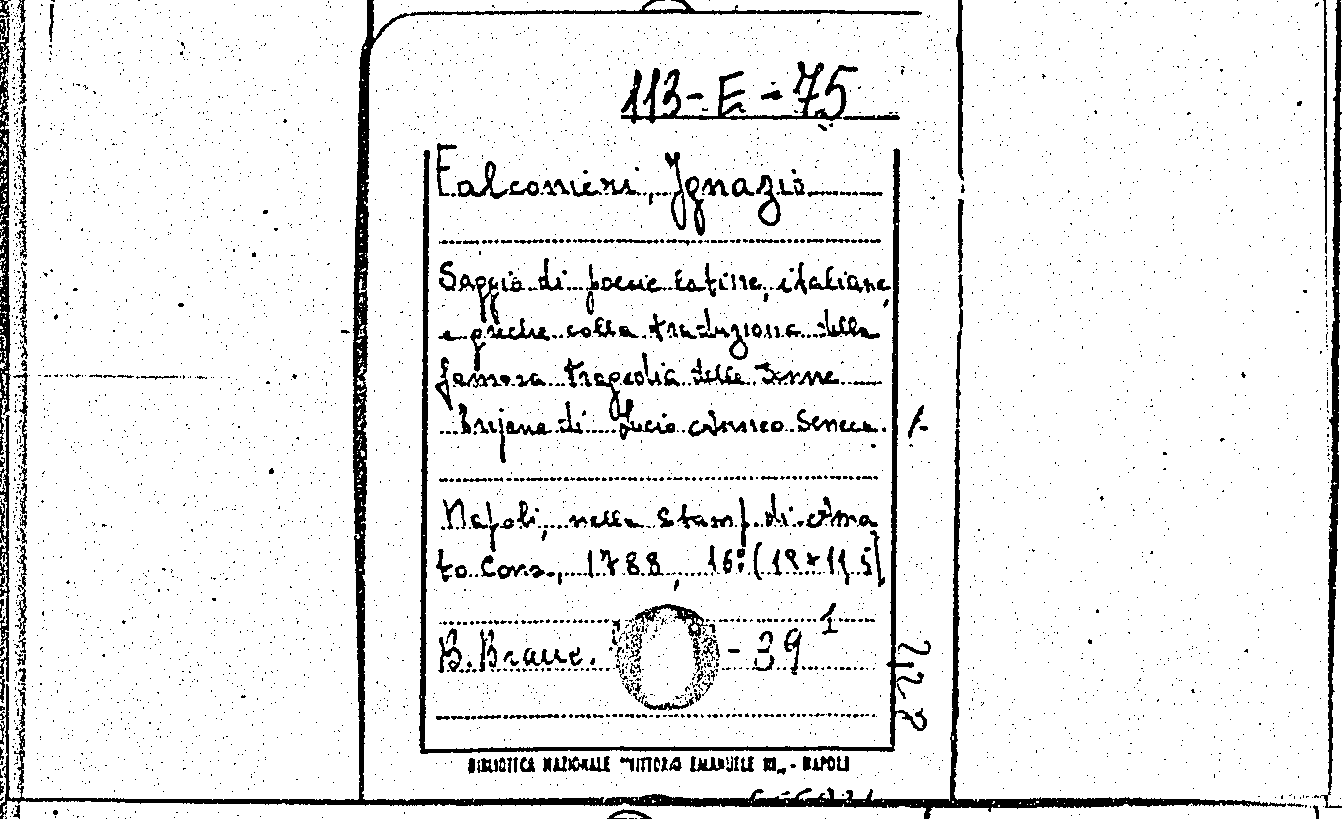 113-E-75
Falconieri, Ignazio
Saggio di poesie latine, italiane,
e greche colla traduzione della
famosa tragedia delle Donne
Trojane di Lucio Anneo Seneca.
Napoli, nella Stamp. di Ama
to Cons., 1788, 16° (19×11,5)
B. Branc. - 39 1
BIBLIOTECA NAZIONALE "VITTORIO EMANUELE III„ - NAPOLI